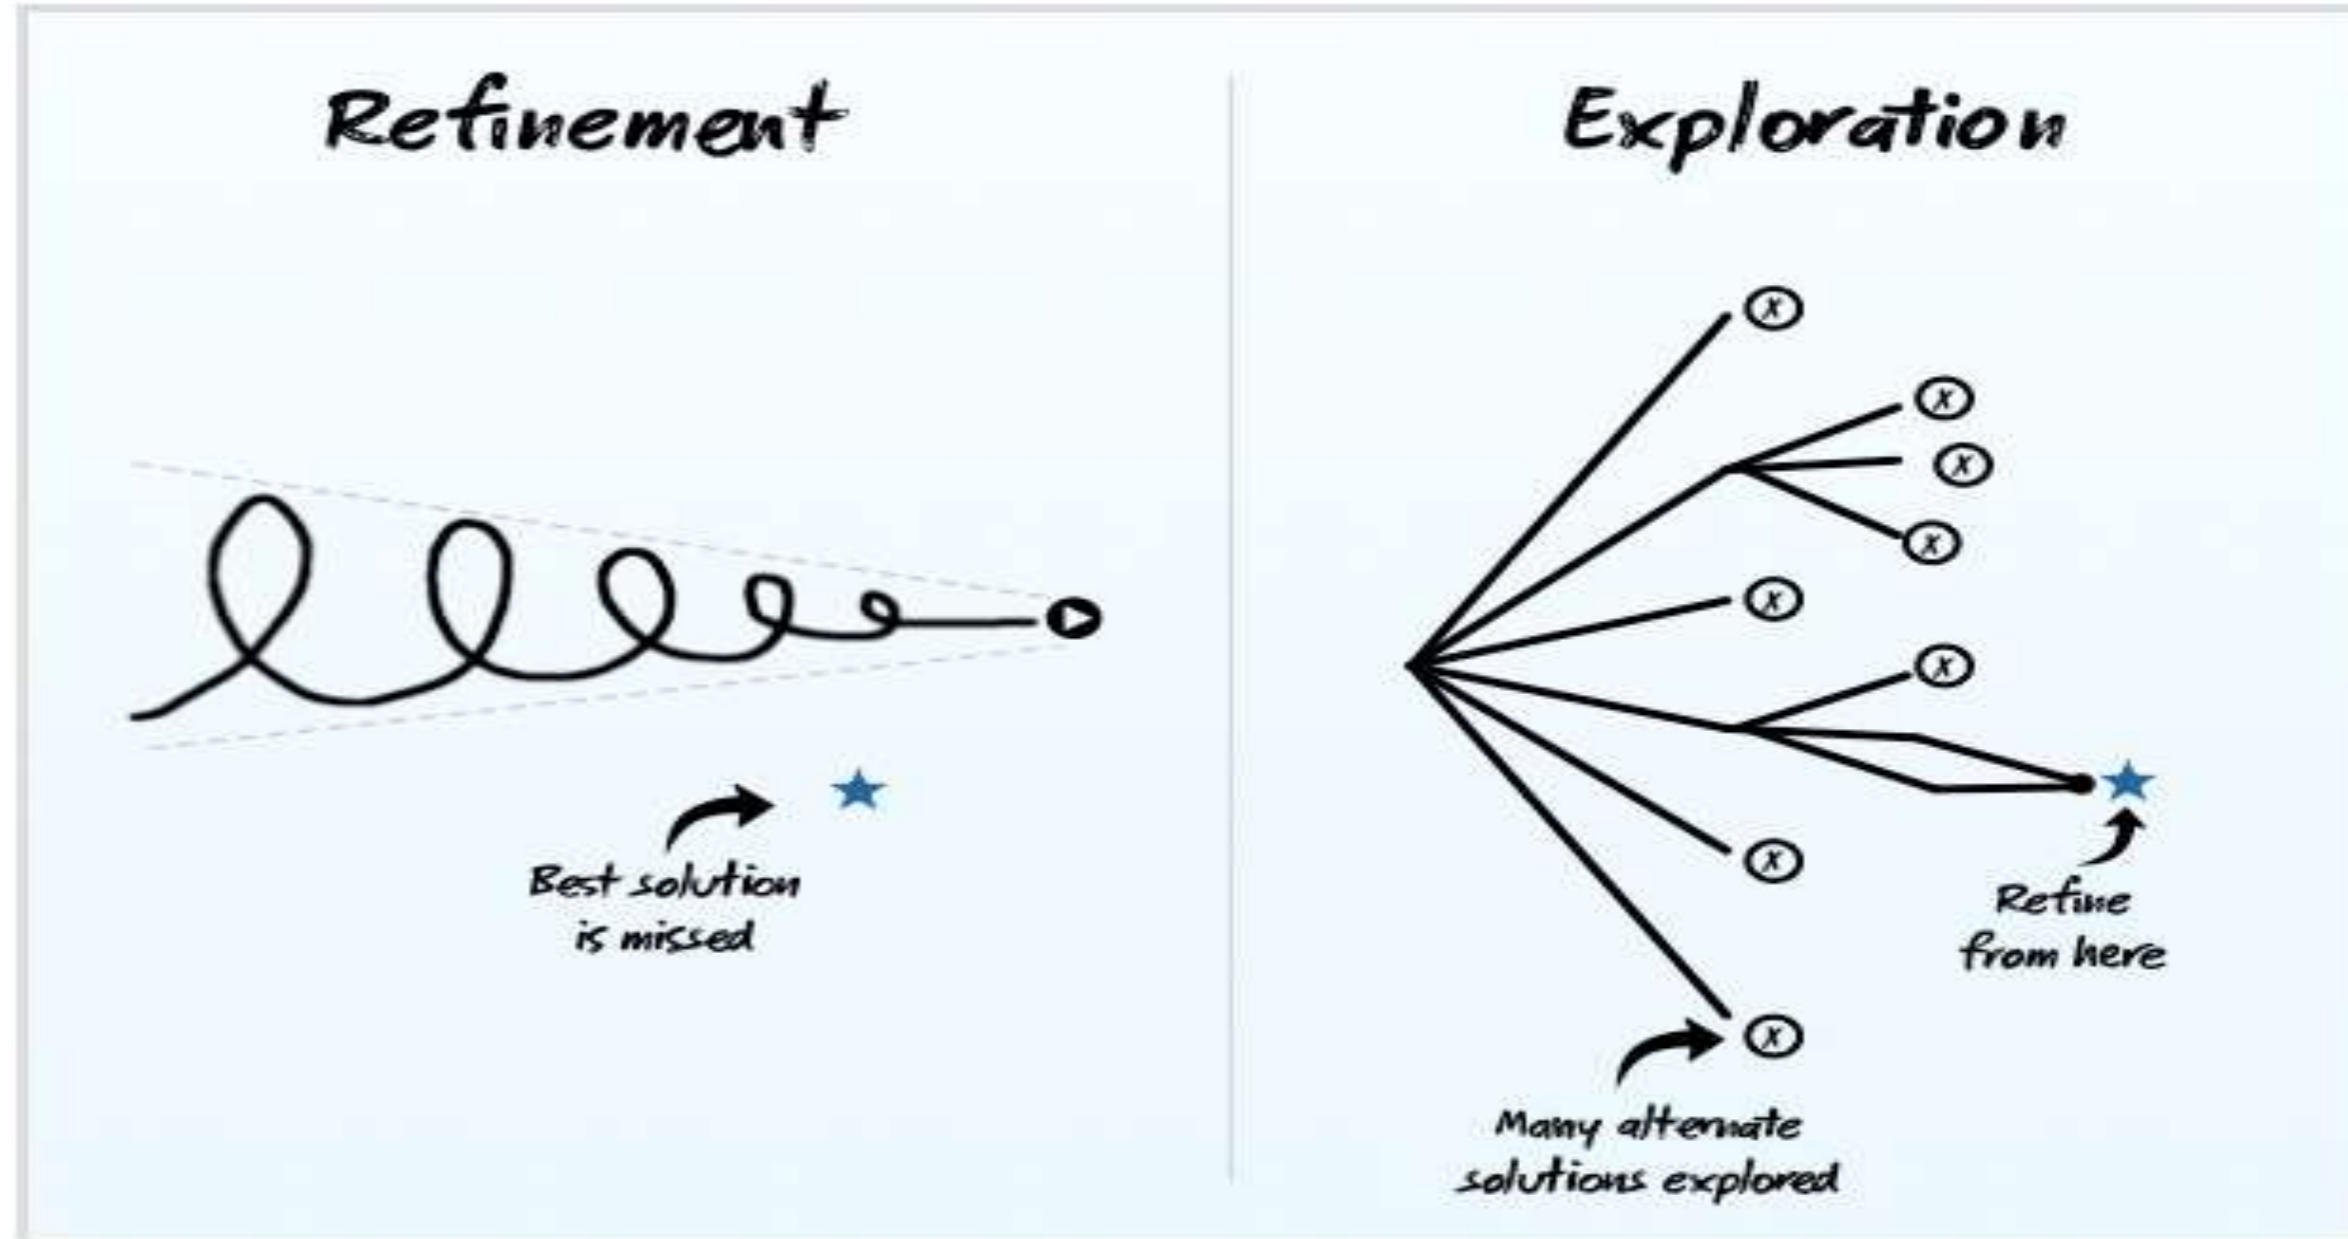 Refinement
Best solution
is missed
Exploration
x
x
x
x
x
x
x
x
Refine
from here
Many alternate
solutions explored